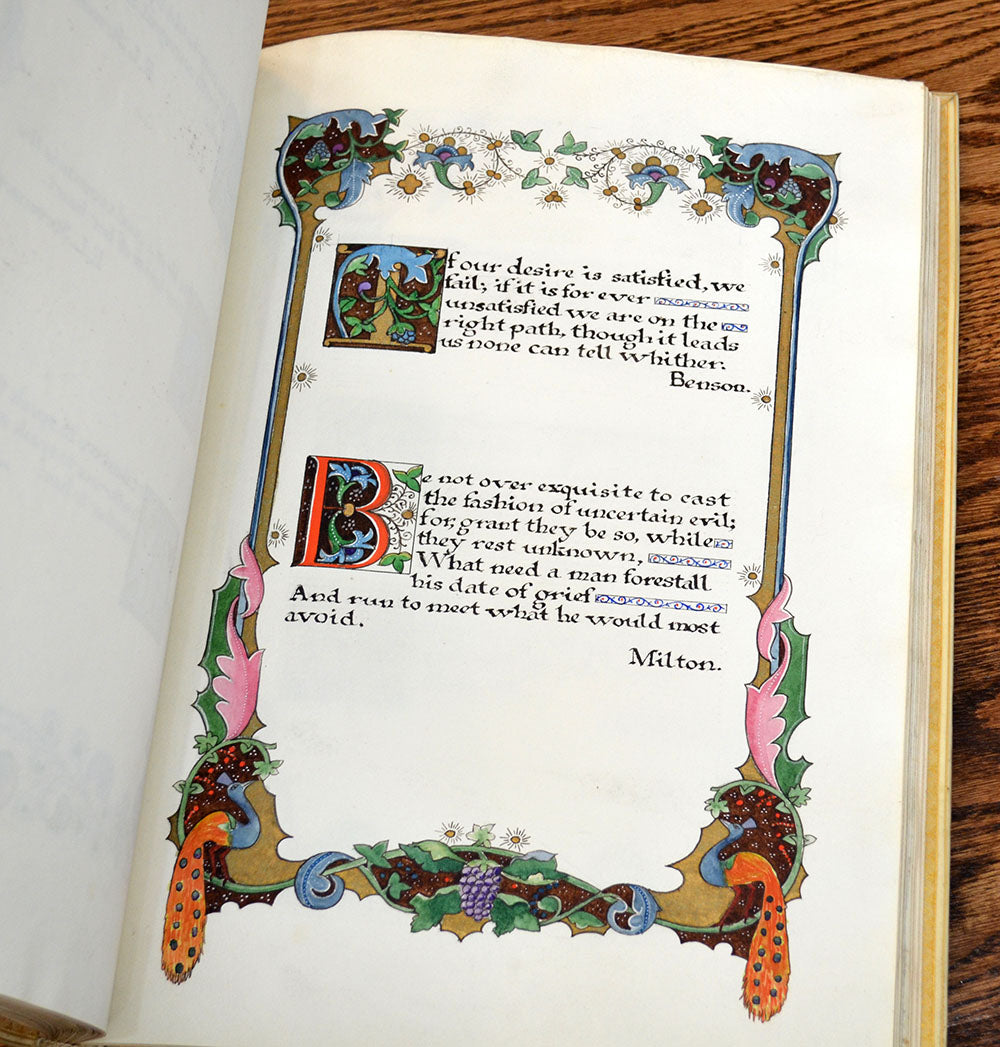 If our desire is satisfied, we
fail; if it is for ever
unsatisfied we are on the
right path, though it leads
us none can tell whither.
Benson.
Be not over exquisite to cast
the fashion of uncertain evil;
for, grant they be so, while
they rest unknown,
What need a man forestall
his date of grief
And run to meet what he would most
avoid.
Milton.